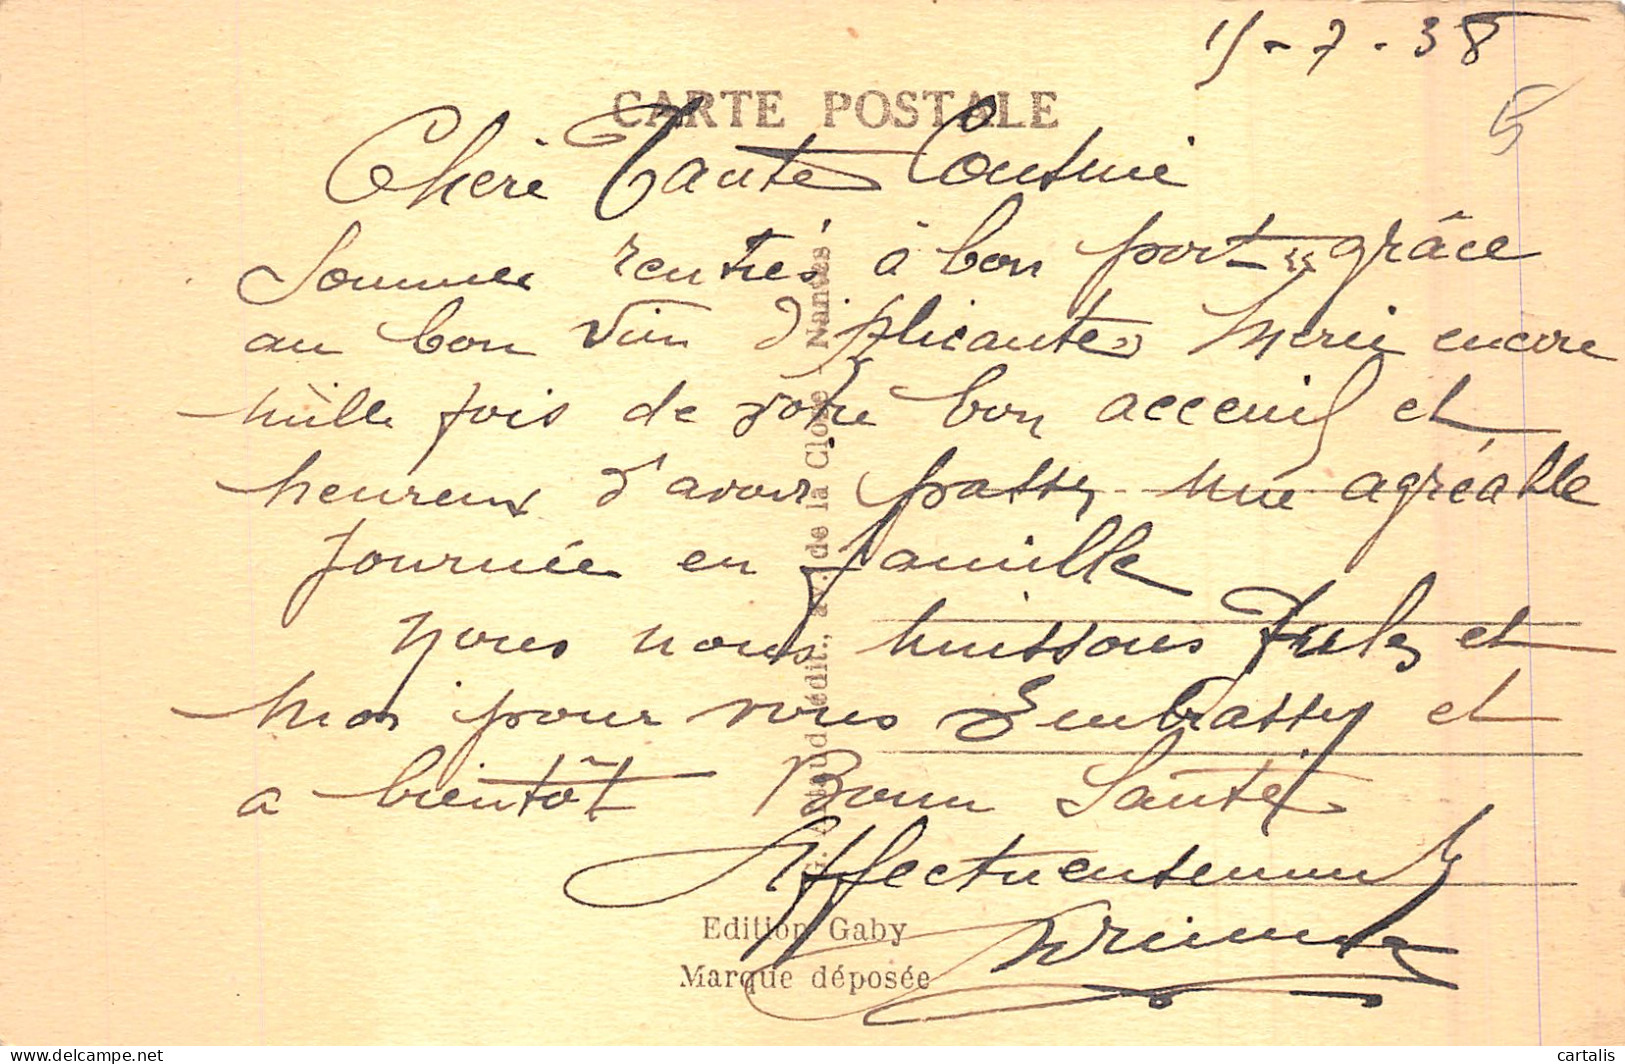 -7-38
5
CARTE POSTALE
Chère Tante
Sommes rentrés à bon port grâce
au bon vin d' Merci encore
mille fois de votre bon acceuil et
heureux d'avoir passer une agréable
journée en famille
nous nous unissons Jules et
moi pour vous Embrasser et
a bientôt Bonne Santé
Affectueusement
G. Artaud, édit., av. de la Close - Nantes
Edition Gaby
Marque déposée
cartalis